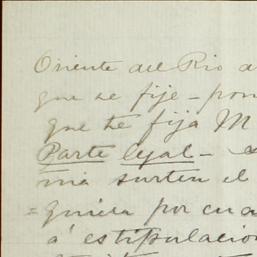 Oriente del Rio a
que se fije - pon
que te fija M
Parte legal - 
mia surten el
= quiera por cua
á estipulacion